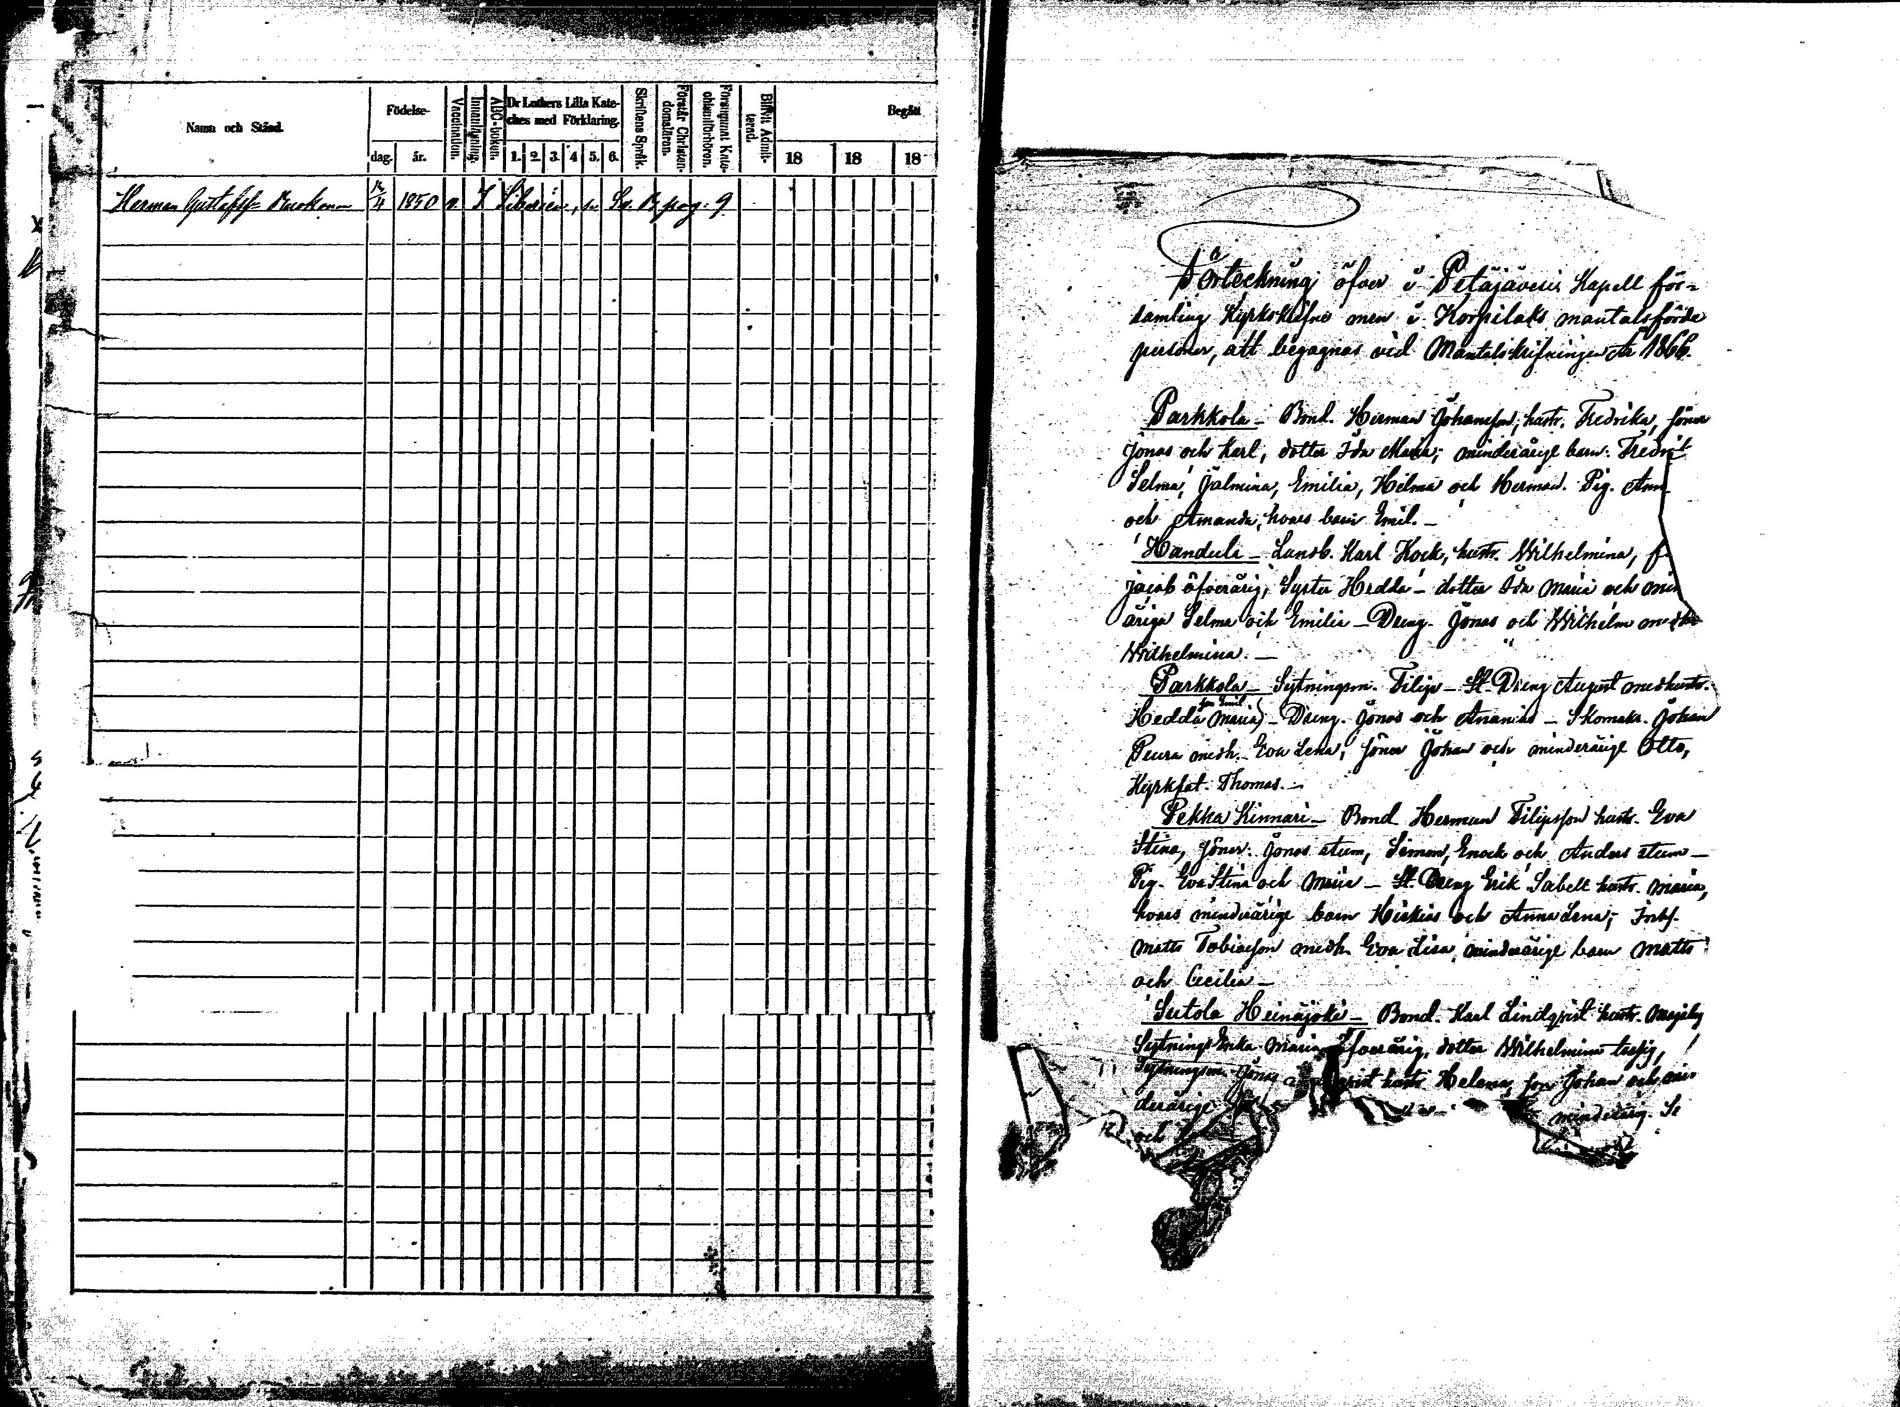 Namn och Stånd.
Födelse-
dag.
år.
Vaccination.
Innanläsning.
ABC-boken.
Dr Luthers Lilla Kate-
ches med Förklaring.
1. 2. 3. 4 5. 6.
Skriftens Språk.
Förstår Christen-
domsläran.
Försummat Kate-
chismiförhören.
Blifvit Admit-
terad.
Begått
18 18 18
Herman Gustafss 1850 v. I pag. 9
Förteckning öfver i Petäjävesi Kapell för-
samling Kyrkskrifne men i Korpilaks mantalsförde
personer, att begagnas vid Mantalsskrifningen År 1866.
Parkkola – Bond. Herman Johansson, hustr. Fredrika, söner
Jonas och Karl, dotter Ida Maria; minderårige barn: Fredrik
Selma, Jalmina, Emilia, Hilma och Herman. Pig. Ann
och Amanda, hvars barn Emil. –
Handuli – Landb. Karl Kock, hustr. Wilhelmina, f
Jacob öfverårig, Syster Hedda – dotter Ida Maria och min
åriga Selma och Emilia – Dreng. Jonas och Wilhelm med
Wilhelmina. –
Parkkola – Sytningsm. Filip – St. Dreng August med hustr.
Hedda Maria) – Dreng. Jonas och Ananias – Skomak. Johan
son Emil
Peura med h. Eva Lena, söner Johan och minderårige Otto,
Kyrkfat. Thomas. –
Pekka Kinnari – Bond Herman Filipsson hustr. Eva
Stina, söner. Jonas stum, Simon, Enock och Anders stum –
Pig. Eva Stina och Maria – St. Dreng Erik Sabell hustr. Maria,
hvars minderårige barn Hiskias och Anna Lena; Inhs.
Matts Tobiasson med h. Eva Lisa, minderårige barn Matts
och Cecilia –
Sutola Heinäjoki – Bond. Karl Lindqvist hustr.
Sytnings Enka Maria öfverårig, dotter Wilhelmina
Sytningsm. Jonas hustr Helena, son Johan och min
derårige minderårig.
och